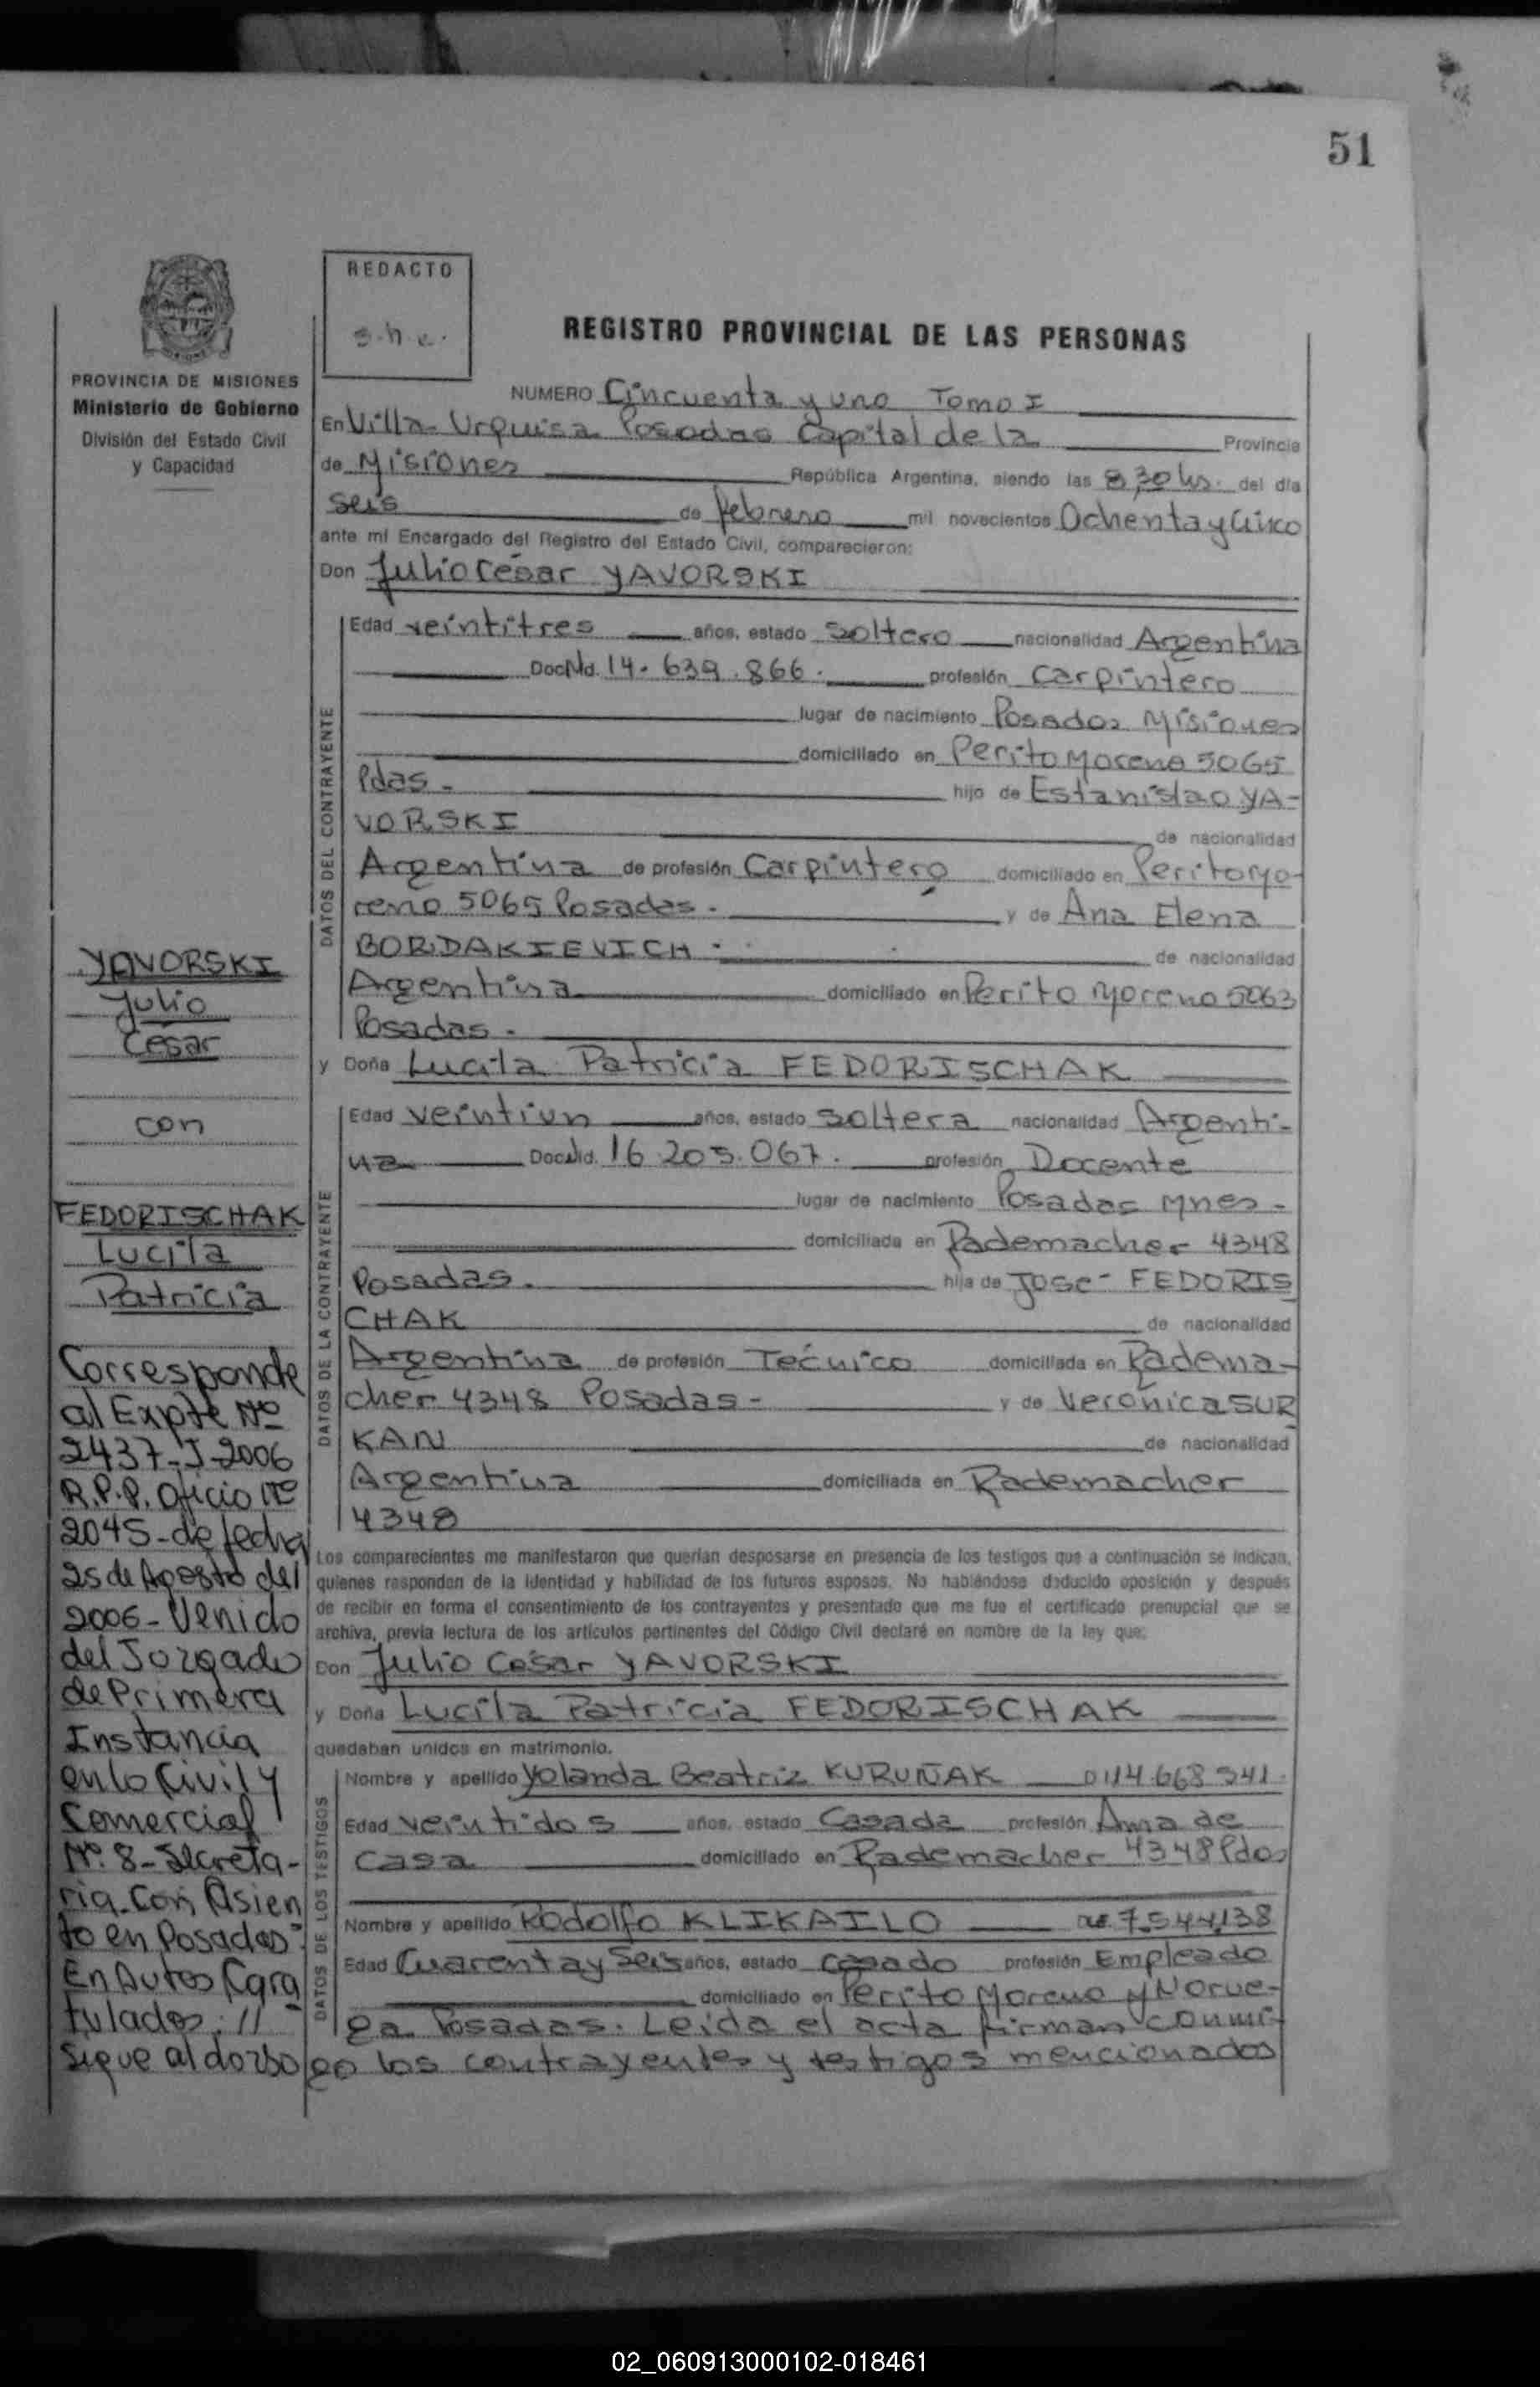 51
REDACTO
REGISTRO PROVINCIAL DE LAS PERSONAS
PROVINCIA DE MISIONES
Ministerio de Gobierno
División del Estado Civil
y Capacidad
NUMERO Cincuenta y uno Tomo I
En Villa Urquisa Posadas Capital de la Provincia
de Misiones República Argentina, siendo las 8,30 hs. del día
seis de febrero mil novecientos Ochenta y Cinco
ante mí Encargado del Registro del Estado Civil, comparecieron:
Don Julio César YAVORSKI
DATOS DEL CONTRAYENTE
Edad veintitres años, estado soltero nacionalidad Argentina
Doc Nd. 14.639.866. profesión Carpintero
lugar de nacimiento Posadas Misiones
domiciliado en Perito Moreno 5065
Pdas - hijo de Estanislao YA-
VORSKI de nacionalidad
Argentina de profesión Carpintero domiciliado en Perito Mo-
reno 5065 Posadas. y de Ana Elena
BORDAKIEVICH de nacionalidad
Argentina domiciliado en Perito Moreno 5063
Posadas.
y Doña Lucila Patricia FEDORISCHAK
DATOS DE LA CONTRAYENTE
Edad veintiun años, estado soltera nacionalidad Argenti-
na Doc Nd. 16.205.067. profesión Docente
lugar de nacimiento Posadas Mnes -
domiciliada en Rademacher 4348
Posadas. hija de José FEDORIS
CHAK de nacionalidad
Argentina de profesión Técnico domiciliada en Radema-
cher 4348 Posadas - y de Verónica SUR
KAN de nacionalidad
Argentina domiciliada en Rademacher
4348
Los comparecientes me manifestaron que querían desposarse en presencia de los testigos que a continuación se indican,
quienes responden de la identidad y habilidad de los futuros esposos. No habiéndose deducido oposición y después
de recibir en forma el consentimiento de los contrayentes y presentado que me fue el certificado prenupcial que se
archiva, previa lectura de los artículos pertinentes del Código Civil declaré en nombre de la ley que:
Don Julio César YAVORSKI
y Doña Lucila Patricia FEDORISCHAK
quedaban unidos en matrimonio.
DATOS DE LOS TESTIGOS
Nombre y apellido Yolanda Beatriz KURUÑAK 14.668.541.
Edad veintidos años, estado Casada profesión Ama de
casa domiciliado en Rademacher 4348 Pdas
Nombre y apellido Rodolfo KLIKAILO 7.544.138
Edad Cuarenta y Seis años, estado casado profesión Empleado
domiciliado en Perito Moreno y Norue-
ga Posadas. Leida el acta firman conmi-
go los contrayentes y testigos mencionados
YAVORSKI
Julio
César
con
FEDORISCHAK
Lucila
Patricia
Corresponde
al Expte Nº
2437-J-2006
R.P.P. Oficio Nº
2045-de fecha
25 de Agosto del
2006-Venido
del Juzgado
de Primera
Instancia
en lo Civil y
Comercial
Nº 8-Secreta-
ria-Con Asien
to en Posadas
En Autos Cara
tulados; //
Sigue al dorso
02_060913000102-018461